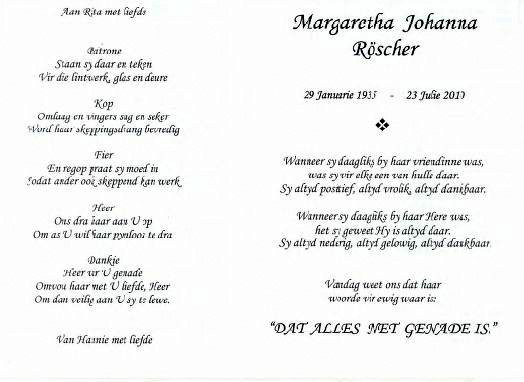 Aan Rita met liefde
Patrone
Staan sy daar en teken
Vir die lintwerk, glas en deure
Kop
Omlaag en vingers sag en seker
Word haar skeppingsdrang bevredig
Fier
En regop praat sy moed in
Sodat ander ook skeppend kan werk
Heer
Ons dra haar aan U op
Om as U wil haar pynloos te dra
Dankie
Heer vir U genade
Omvou haar met U liefde, Heer
Om dan veilig aan U sy te lewe.
Van Hannie met liefde
Margaretha Johanna
Röscher
29 Januarie 1935 - 23 Julie 2010
Wanneer sy daagliks by haar vriendinne was,
was sy vir elke een van hulle daar.
Sy altyd positief, altyd vrolik, altyd dankbaar.
Wanneer sy daagliks by haar Here was,
het sy geweet Hy is altyd daar.
Sy altyd nederig, altyd gelowig, altyd dankbaar.
Vandag weet ons dat haar
woorde vir ewig waar is:
“DAT ALLES NET GENADE IS.”